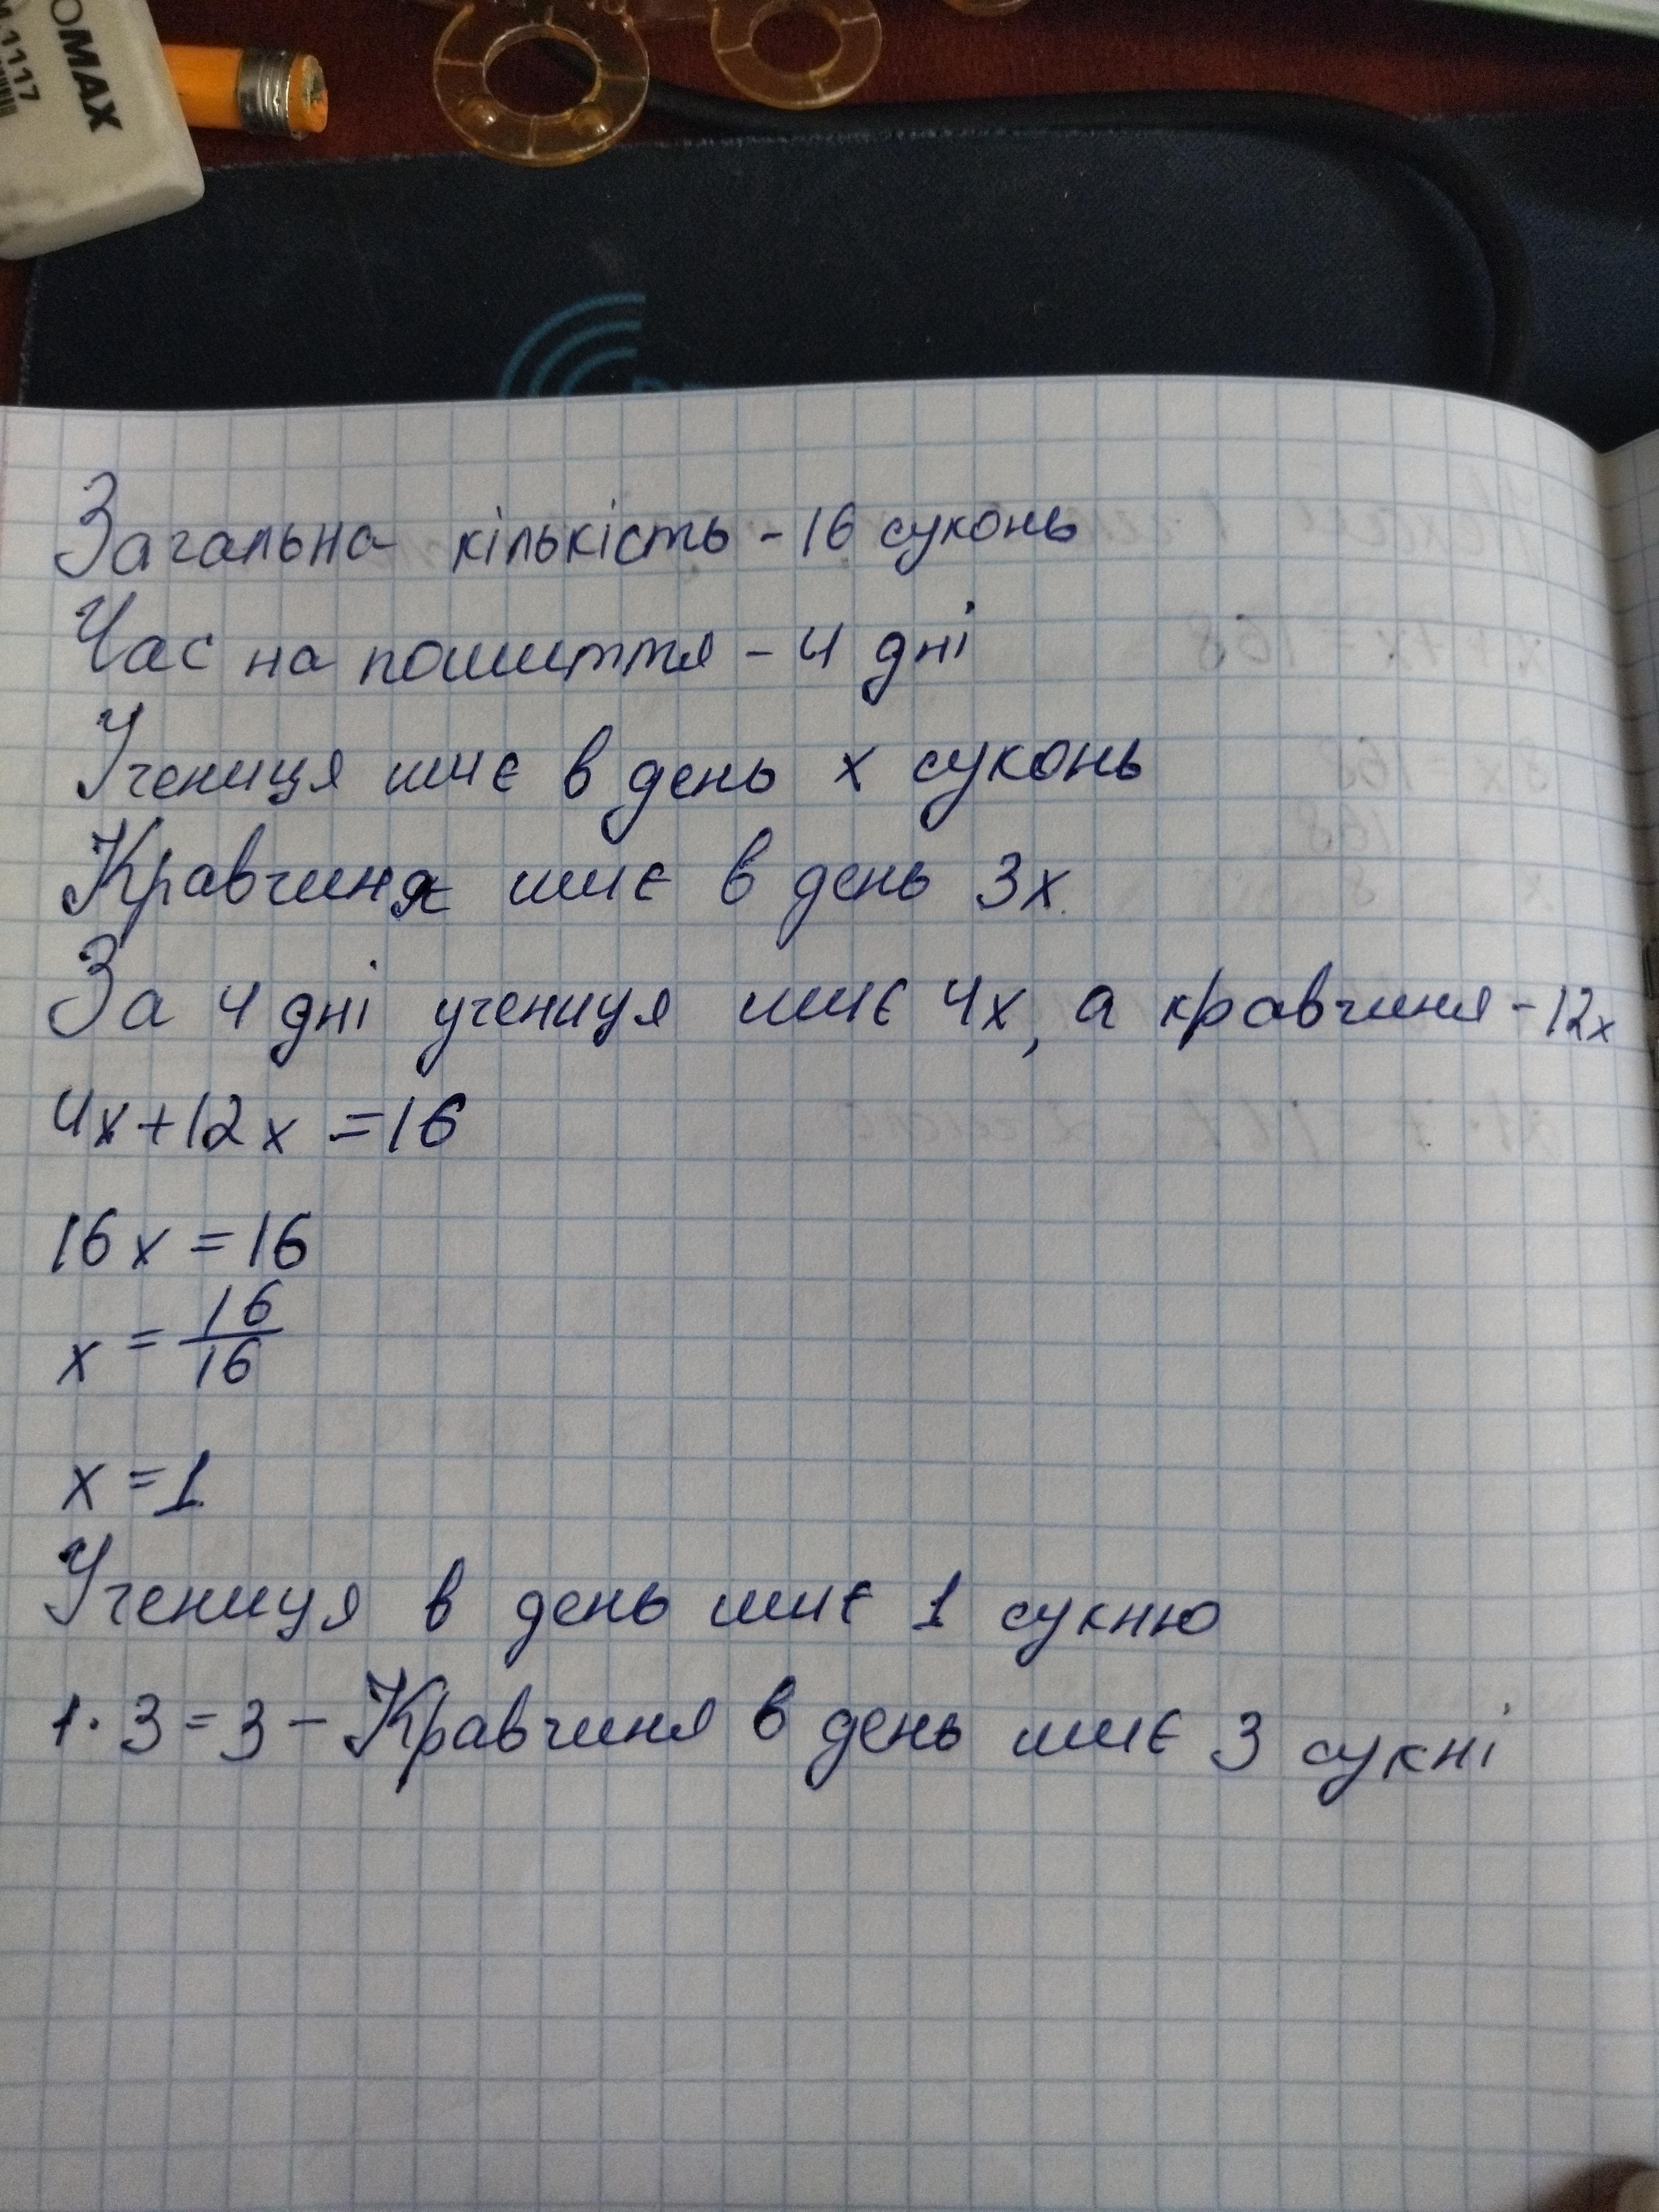 OMAX
1117
Загальна кількість - 16 суконь
Час на пошиття - 4 дні
Учениця шиє в день x суконь
Кравчиня шиє в день 3x
За 4 дні учениця шиє 4x, а кравчиня - 12x
4x+12x=16
16x=16
x=16/16
x=1
Учениця в день шиє 1 сукню
1·3=3 - Кравчиня в день шиє 3 сукні